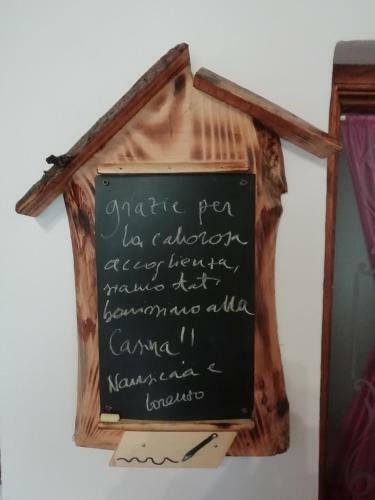 grazie per
la calorosa
accoglienza,
siamo stati
benissimo alla
Casina!!
Nausicaa e
lorenzo